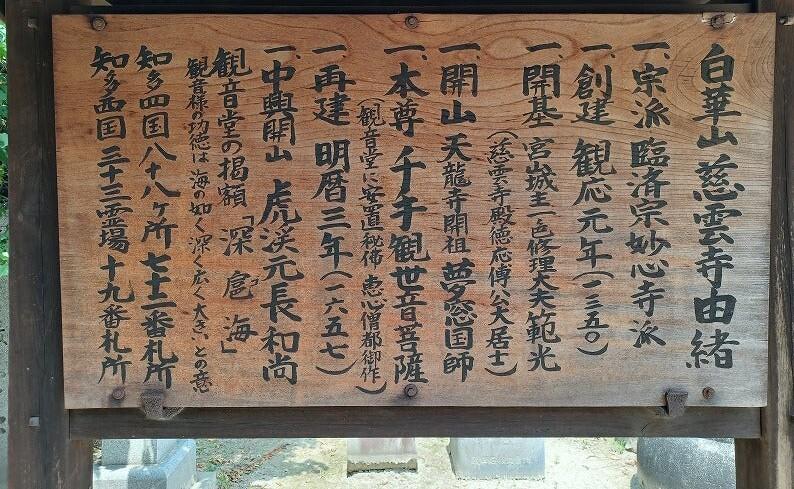 白華山 慈雲寺由緒
一、宗派 臨済宗妙心寺派
一、創建 観応元年(一三五〇)
一、開基 宮山城主一色修理大夫範光
(慈雲寺殿徳応傳公大居士)
一、開山 天龍寺開祖 夢窓国師
一、本尊 千手観世音菩薩
(観音堂に安置秘佛 恵心僧都御作)
一、再建 明暦三年(一六五七)
一、中興開山 虎渓元長和尚
観音堂の掲額「深扈海」
観音様の功徳は 海の如く深く広く大きいとの意
知多四国八十八ヶ所 七十二番札所
知多西国 三十三霊場 十九番札所